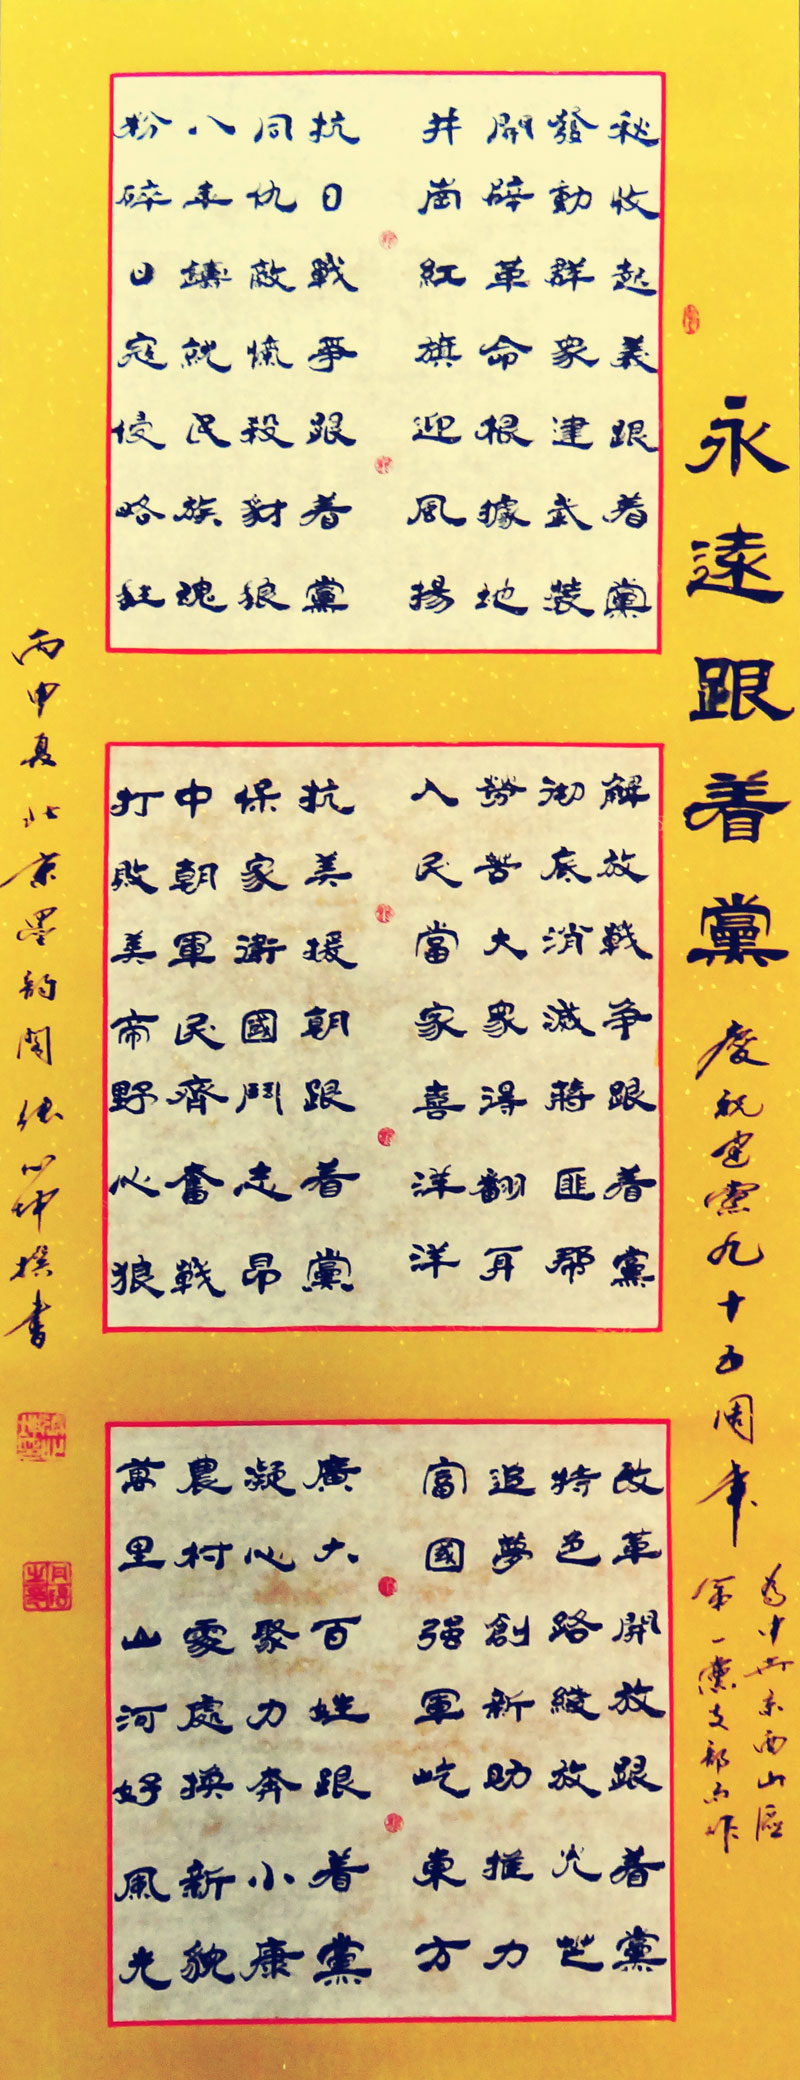 永遠跟着黨
慶祝建黨九十五周年
為中共京西山區
第一黨支部而作
秋收起義跟着黨
發動群衆建武裝
開辟革命根據地
井崗紅旗迎風揚
抗日戰爭跟着黨
同仇敵愾殺豺狼
八年鑄就民族魂
粉碎日寇侵略狂
解放戰争跟着黨
彻底消滅蔣匪幫
勞苦大衆得翻身
人民當家喜洋洋
抗美援朝跟着黨
保家衛國鬥志昂
中朝軍民齊奮戰
打敗美帝野心狼
改革開放跟着黨
特色路綫放光芒
追夢創新助推力
富國强軍屹東方
廣大百姓跟着黨
凝心聚力奔小康
農村處處換新貌
萬里山河好風光
丙申夏北京墨韵閣張心坤撰書